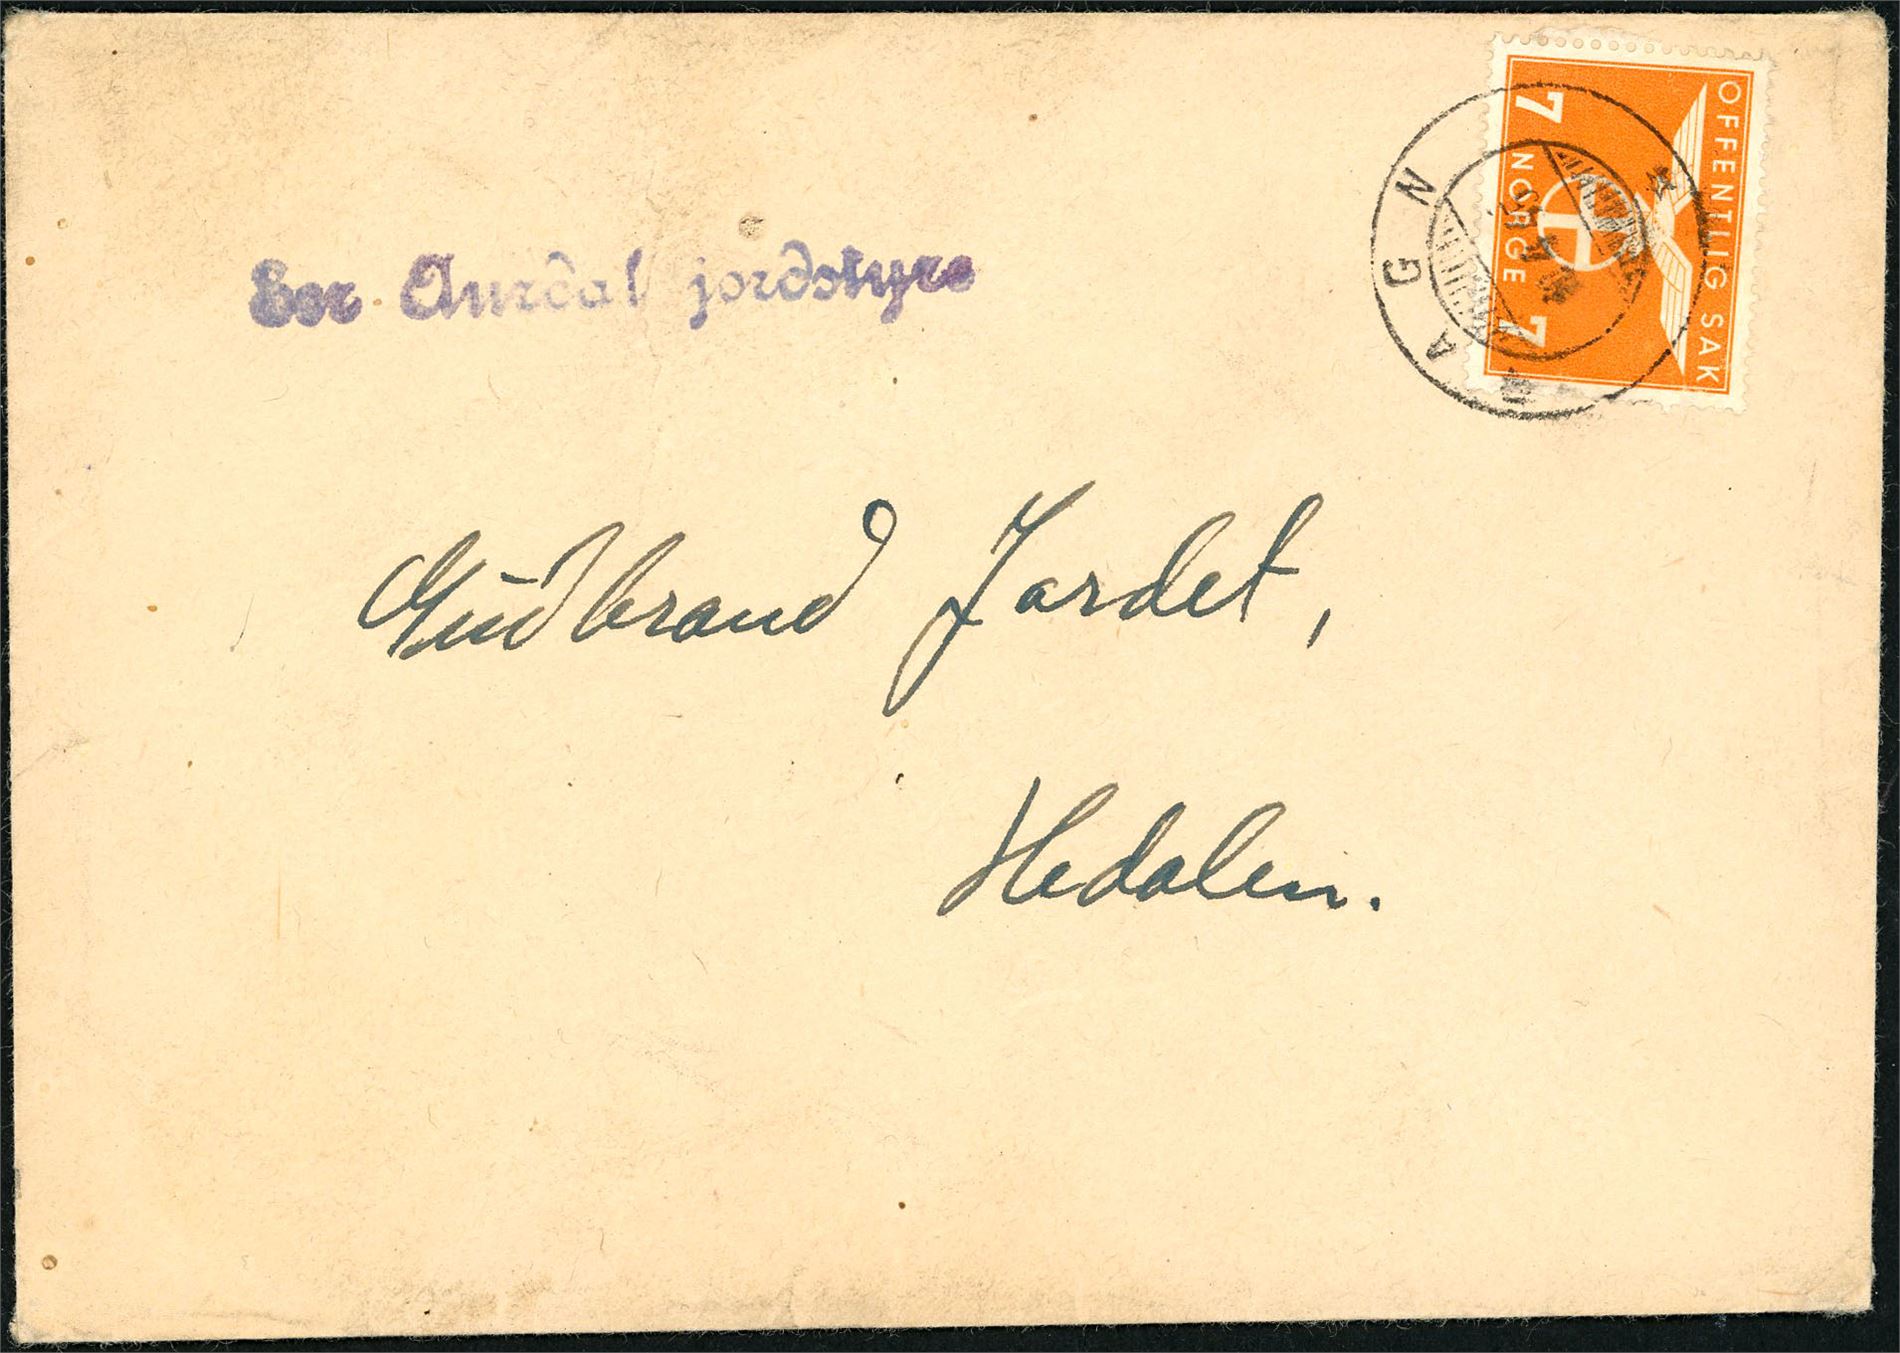 Sør Aurdal jordstyre
OFFENTLIG SAK
7 NORGE 7
BAGN
Gudbrand Jardet,
Hedalen.